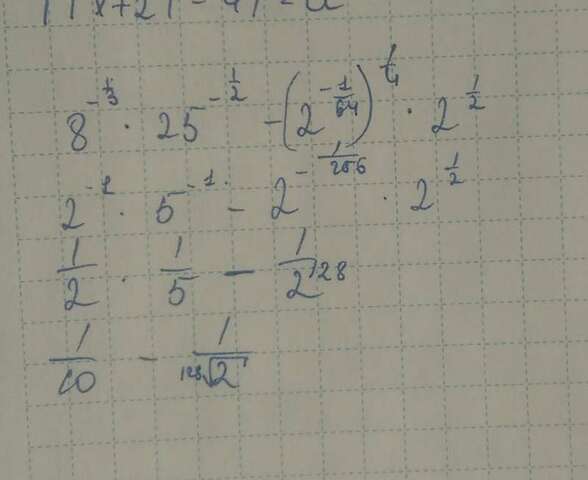 8^{-\frac{1}{3}} · 25^{-\frac{1}{2}} - (2^{-\frac{1}{64}})^{\frac{1}{4}} · 2^{\frac{1}{2}}
2^{-1} · 5^{-1} - 2^{-\frac{1}{256}} · 2^{\frac{1}{2}}
\frac{1}{2} · \frac{1}{5} - \frac{1}{2^{128}}
\frac{1}{10} - \frac{1}{\sqrt[128]{2}}